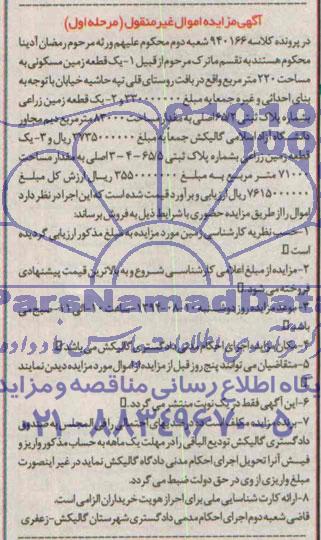 آگهی مزایده اموال غیر منقول (مرحله اول)
در پرونده کلاسه ۹۴۰۱۶۶ شعبه دوم محکوم علیهم ورثه مرحوم رمضان آدینا
محکوم هستند به تقسیم ماترک مرحوم از قبیل ۱- یک قطعه زمین مسکونی به
مساحت ۲۲۰ متر مربع واقع در بافت روستای قلی تپه حاشیه خیابان با توجه به
بنای احداثی و غیره جمعا به مبلغ ریال و ۲- یک قطعه زمین زراعی
بشماره پلاک ثبتی ۶۵/۲ اصلی به مقدار مساحت ۸۳۰۰۰ متر مربع دیم مجاور
دانشگاه آزاد اسلامی گالیکش جمعاً به مبلغ ۳۷۳۵۰۰۰۰۰۰ ریال و ۳- یک
قطعه زمین زراعی بشماره پلاک ثبتی ۶۵/۵ – ۴ – ۳ اصلی به مقدار مساحت
۷۱۰۰۰ متر مربع به مبلغ ۳۵۵۰۰۰۰۰۰۰ ریال ارزش کل مبلغ
۷۶۱۵۰۰۰۰۰۰ ریال ارزیابی و برآورد قیمت شده است که این اجرا در نظر دارد
اموال را از طریق مزایده حضوری با شرایط ذیل به فروش برساند:
۱-حسب نظریه کارشناسی زمین مورد مزایده به مبلغ مذکور ارزیابی گردیده
است
۲-مزایده از مبلغ اعلامی کارشناسی شروع و به بالاترین قیمت پیشنهادی
فروخته می شود.
۳-موعد مزایده روز دوشنبه ساعت ۱۰ الی ۱۱ صبح می
باشد
۴-مکان مزایده اجرای احکام مدنی دادگستری گالیکش می باشد
۵-متقاضیان می توانند پنج روز قبل از مزایده از اموال مورد مزایده دیدن نمایند
۶-این آگهی فقط در یک نوبت منتشر می گردد.
۷-برنده مزایده مکلف است ده درصد بهای احتمالی را فی المجلس به صندوق
دادگستری گالیکش تودیع الباقی را در مهلت یک ماهه به حساب مذکور واریز و
فیش آنرا تحویل اجرای احکام مدنی دادگاه گالیکش نماید در غیر اینصورت
مبلغ واریزی از وی در حق دولت ضبط می گردد.
۸-ارائه کارت شناسایی ملی برای احراز هویت خریداران الزامی است.
قاضی شعبه دوم اجرای احکام مدنی دادگستری شهرستان گالیکش-زعفری
ParsNamadData
پایگاه اطلاع رسانی مناقصه و مزایده
۰۲۱-۸۸۳۴۹۶۷۰-۵